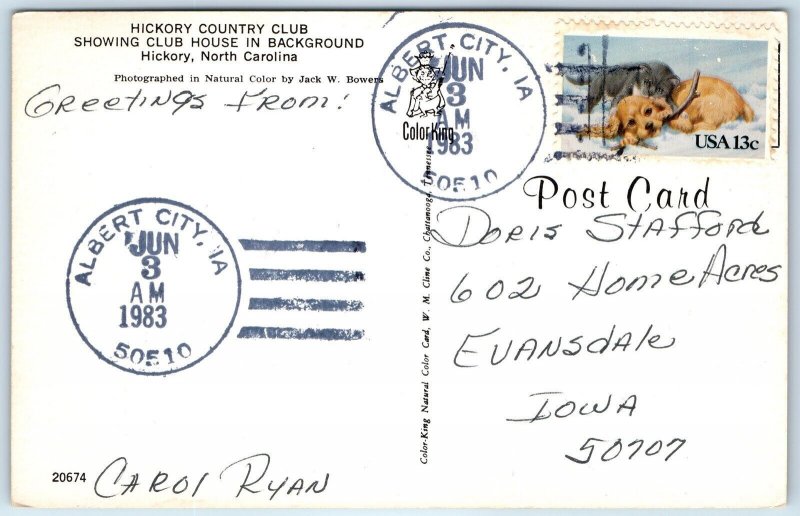 HICKORY COUNTRY CLUB
SHOWING CLUB HOUSE IN BACKGROUND
Hickory, North Carolina
Photographed in Natural Color by Jack W. Bowers
Greetings From!
ALBERT CITY, IA
JUN
3
AM
1983
50510
ColorKing
USA 13c
Post Card
Doris Stafford
602 Home Acres
Evansdale
Iowa
50707
ALBERT CITY, IA
JUN
3
AM
1983
50510
Color-King Natural Color Card, W. M. Cline Co., Chattanooga, Tennessee
20674
Carol Ryan